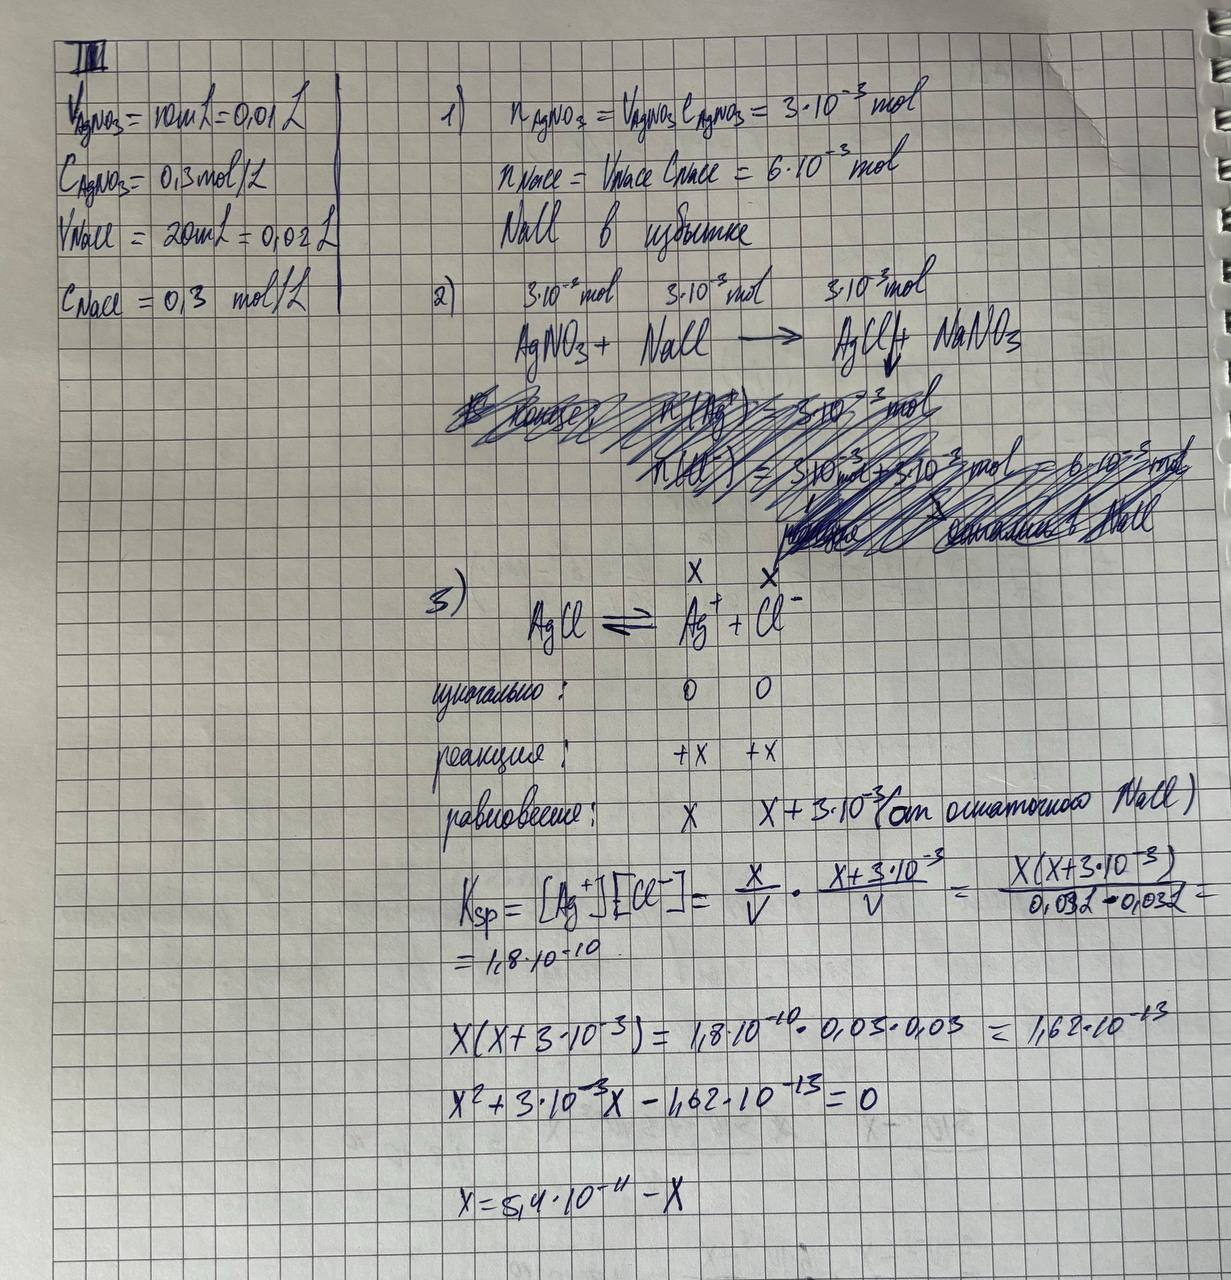 III
V_AgNO3 = 10mL = 0,01 L
C_AgNO3 = 0,3 mol/L
V_NaCl = 20mL = 0,02 L
C_NaCl = 0,3 mol/L
1) n_AgNO3 = V_AgNO3 C_AgNO3 = 3·10⁻³ mol
n_NaCl = V_NaCl C_NaCl = 6·10⁻³ mol
NaCl в избытке
2) 3·10⁻³ mol 3·10⁻³ mol 3·10⁻³ mol
AgNO₃ + NaCl → AgCl↓ + NaNO₃
n(Ag⁺) = 3·10⁻³ mol
n(Cl⁻) = 3·10⁻³ mol + 3·10⁻³ mol = 6·10⁻³ mol
NaCl
x x
3) AgCl ⇌ Ag⁺ + Cl⁻
изначально: 0 0
реакция: +x +x
равновесие: x x + 3·10⁻³ (от остаточного NaCl)
Ksp = [Ag⁺][Cl⁻] = x/V · (x+3·10⁻³)/V = x(x+3·10⁻³)/(0,03L·0,03L) =
= 1,8·10⁻¹⁰
x(x+3·10⁻³) = 1,8·10⁻¹⁰·0,03·0,03 = 1,62·10⁻¹³
x² + 3·10⁻³x − 1,62·10⁻¹³ = 0
x = 5,4·10⁻¹¹ − x